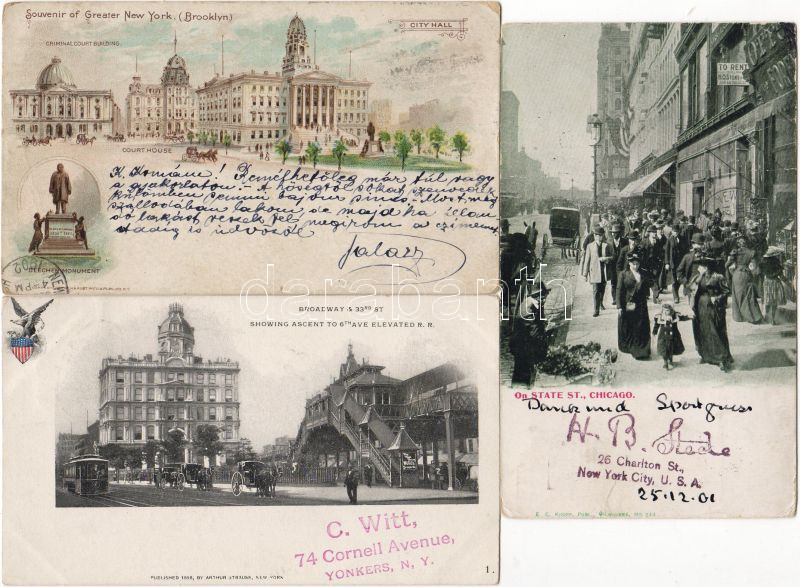 Souvenir of Greater New York. (Brooklyn)
CITY HALL
CRIMINAL COURT BUILDING
COURT HOUSE
K. Komám! Remélhetőleg már túl vagy
a gyakorlaton. - A hőségtől sokat szenvedek
különben semmi bajom sincs. - Most még
szállodában lakom, de majd ha
lakást veszek fel megirom a czimem
addig is üdvözöl
BEECHER MONUMENT
BROADWAY & 33RD ST
SHOWING ASCENT TO 6TH AVE ELEVATED R. R.
C. Witt,
74 Cornell Avenue,
YONKERS, N. Y.
PUBLISHED 1898, BY ARTHUR STRAUSS, NEW YORK
1.
TO RENT
On STATE ST., CHICAGO.
Dank und Sportgruss
H. B.
26 Charlton St.,
New York City, U. S. A.
25.12.01
darabanth